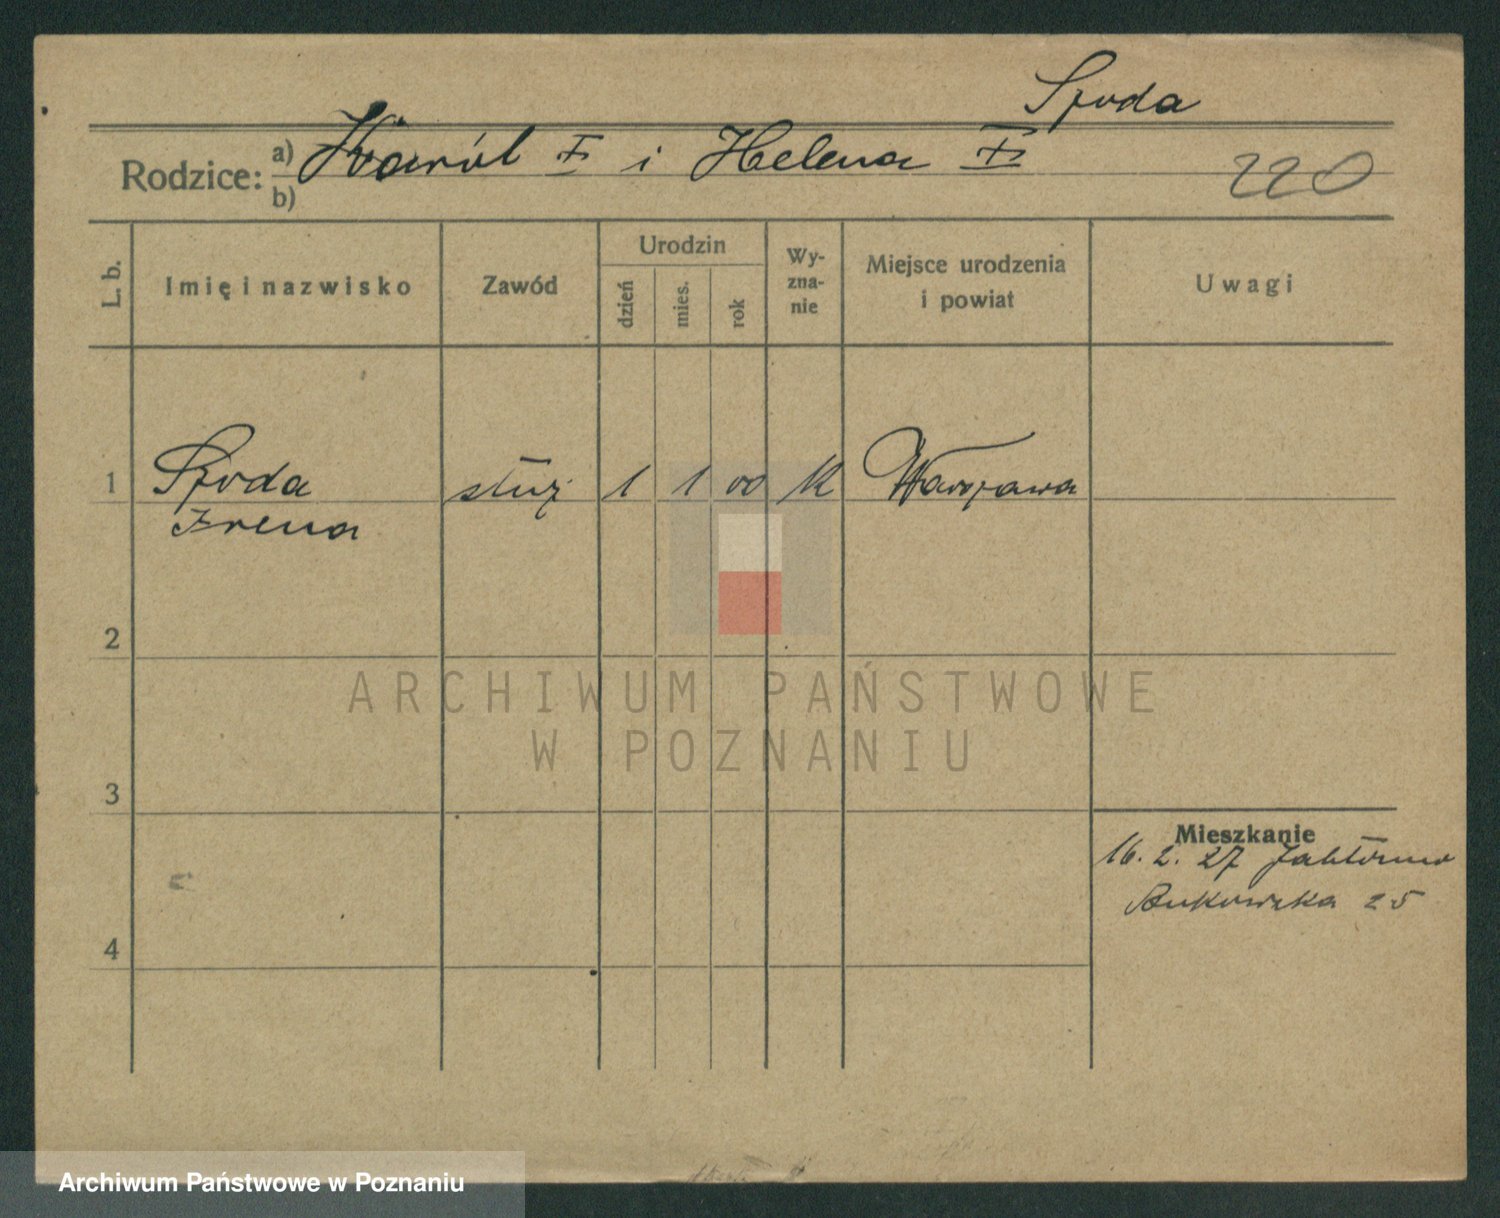 Szoda
Rodzice: a) Karól i Helena
b)
220
L. b.
Imię i nazwisko
Zawód
Urodzin
dzień
mies.
rok
Wy-
zna-
nie
Miejsce urodzenia
i powiat
Uwagi
1 Szoda służ 1 1 00 k Warszawa
Irena
2
3
4
Mieszkanie
16. 2. 27
Bukowska 25
ARCHIWUM PAŃSTWOWE
W POZNANIU
Archiwum Państwowe w Poznaniu